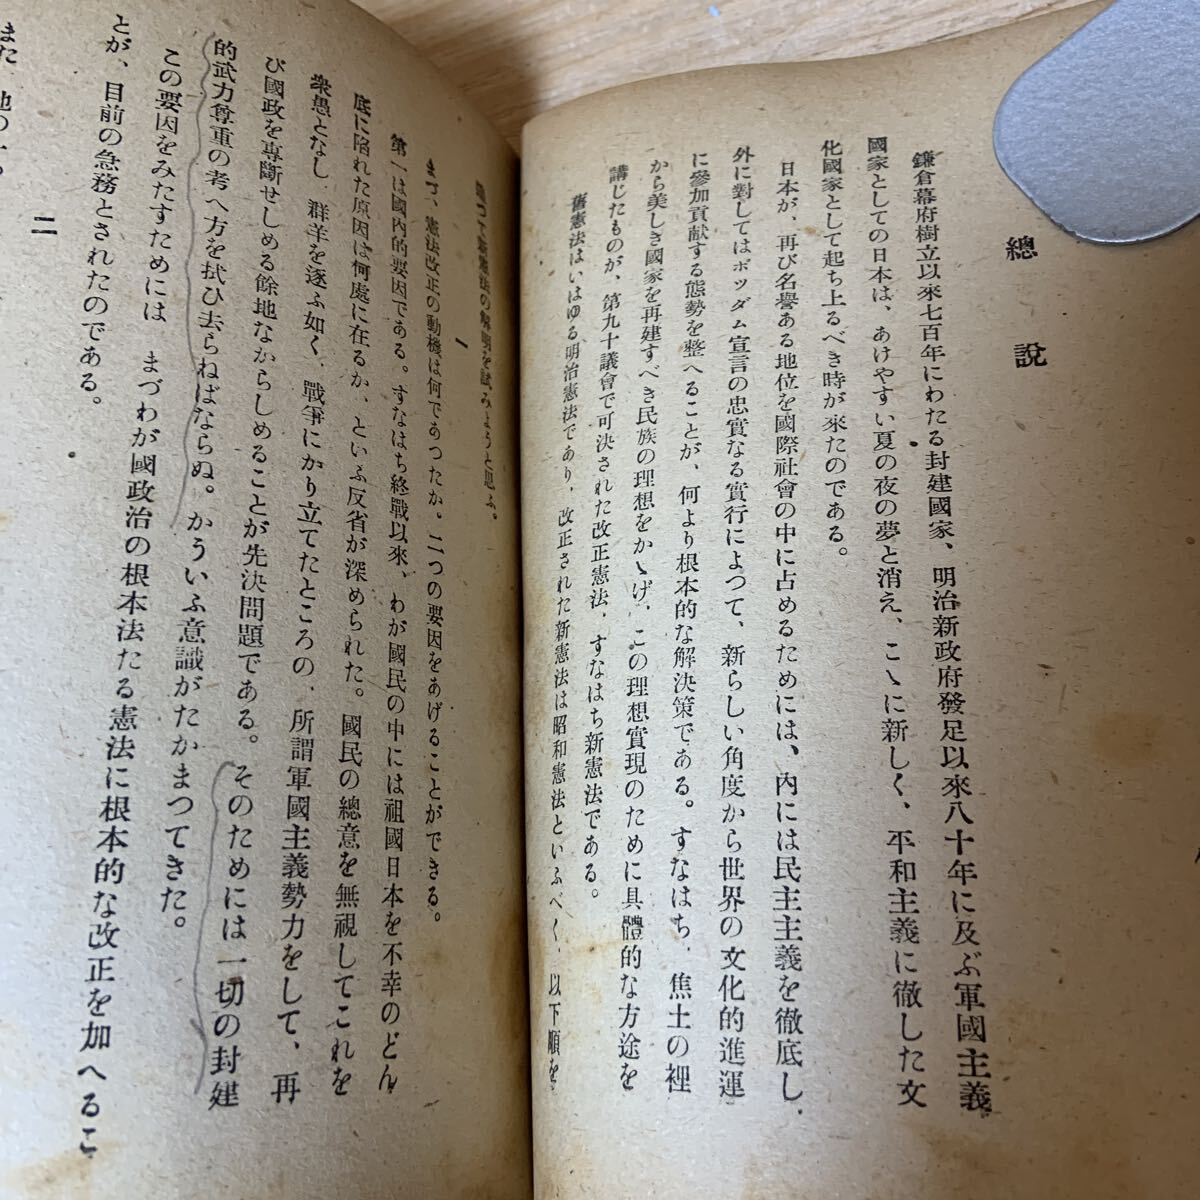 總説
鎌倉幕府樹立以來七百年にわたる封建國家、明治新政府發足以來八十年に及ぶ軍國主義
國家としての日本は、あけやすい夏の夜の夢と消え、こゝに新しく、平和主義に徹した文
化國家として起ち上るべき時が來たのである。
日本が、再び名譽ある地位を國際社會の中に占めるためには、内には民主主義を徹底し、
外に對してはポツダム宣言の忠實なる實行によつて、新らしい角度から世界の文化的進運
に參加貢献する態勢を整へることが、何より根本的な解決策である。すなはち、焦土の裡
から美しき國家を再建すべき民族の理想をかゝげ、この理想實現のために具體的な方途を
講じたものが、第九十議會で可決された改正憲法、すなはち新憲法である。
舊憲法はいはゆる明治憲法であり、改正された新憲法は昭和憲法といふべく、以下順を
つて新憲法の解明を試みようと思ふ。
一
まづ、憲法改正の動機は何であつたか。二つの要因をあげることができる。
第一は國内的要因である。すなはち終戰以來、わが國民の中には祖國日本を不幸のどん
底に陷れた原因は何處に在るか、といふ反省が深められた。國民の總意を無視してこれを
衆愚となし、群羊を逐ふ如く、戰爭にかり立てたところの、所謂軍國主義勢力をして、再
び國政を專斷せしめる餘地なからしめることが先決問題である。そのためには一切の封建
的武力尊重の考へ方を拭ひ去らねばならぬ。かういふ意識がたかまつてきた。
この要因をみたすためには、まづわが國政治の根本法たる憲法に根本的な改正を加へるこ
とが、目前の急務とされたのである。
二
また、他の一